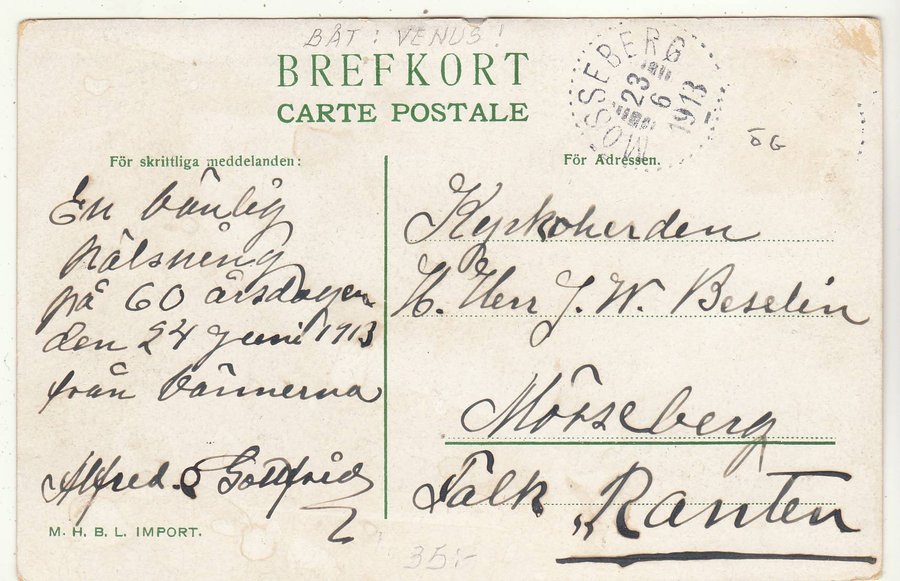 BÅT: VENUS!
BREFKORT
CARTE POSTALE
MÖSSEBERG
23 6
1913
ÖG
För skriftliga meddelanden:
En vänlig
hälsning
på 60 årsdagen
den 24 Juni 1913
från vännerna
Alfred. & Gottfrid
M. H. B. L. IMPORT.
För Adressen.
Kyrkoherden
H. Herr J. W. Beselin
Mösseberg
Falk „Ranten
35:-